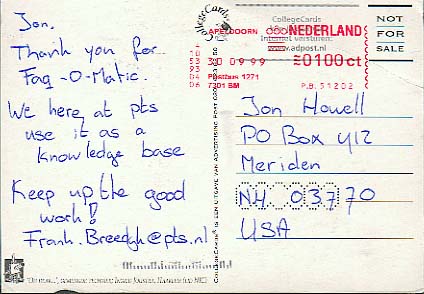 Jon.
Thank you for
Faq-O-Matic.
We here at pts
use it as a
knowledge base
Keep up the good
work!
Frank.Breedijk@pts.nl
CollegeCards
APELDOORN
NEDERLAND
CollegeCards
internet versturen:
www.adpost.nl
30 09 99
0100 ct
Postbus 1271
7301 BM
P.B. 51202
NOT
FOR
SALE
Jon Howell
PO Box 412
Meriden
NH 03770
USA
COLLEGECARDS IS EEN UITGAVE VAN ADVERTISING POST